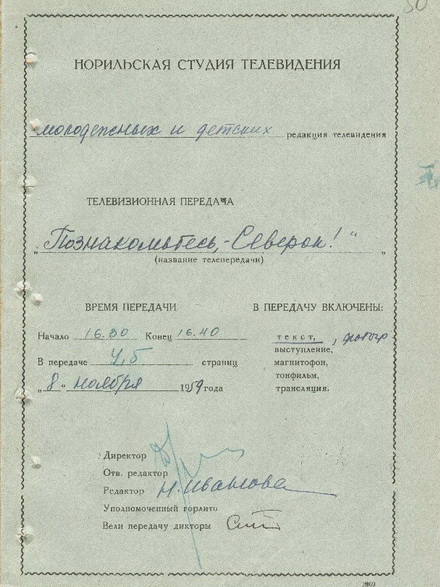 НОРИЛЬСКАЯ СТУДИЯ ТЕЛЕВИДЕНИЯ
молодежных и детских редакция телевидения
ТЕЛЕВИЗИОННАЯ ПЕРЕДАЧА
„Познакомьтесь,-Северок!"
(название телепередачи)
ВРЕМЯ ПЕРЕДАЧИ
Начало 16.30 Конец 16.40
В передаче 4,5 страниц
„8" ноября 1959 года
В ПЕРЕДАЧУ ВКЛЮЧЕНЫ:
текст,
выступление,
магнитофон,
тонфильм,
трансляция.
Директор
Отв. редактор
Редактор Н. Иванова
Уполномоченный горлито
Вели передачу дикторы